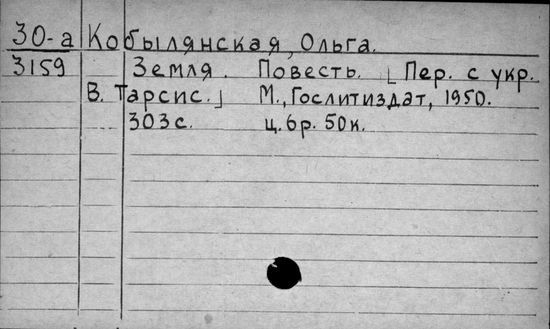 30-а Кобылянская, Ольга.
3159 Земля. Повесть. [Пер. с укр.
В. Тарсис.] М., Гослитиздат, 1950.
303 с. ц. 6 р. 50 к.